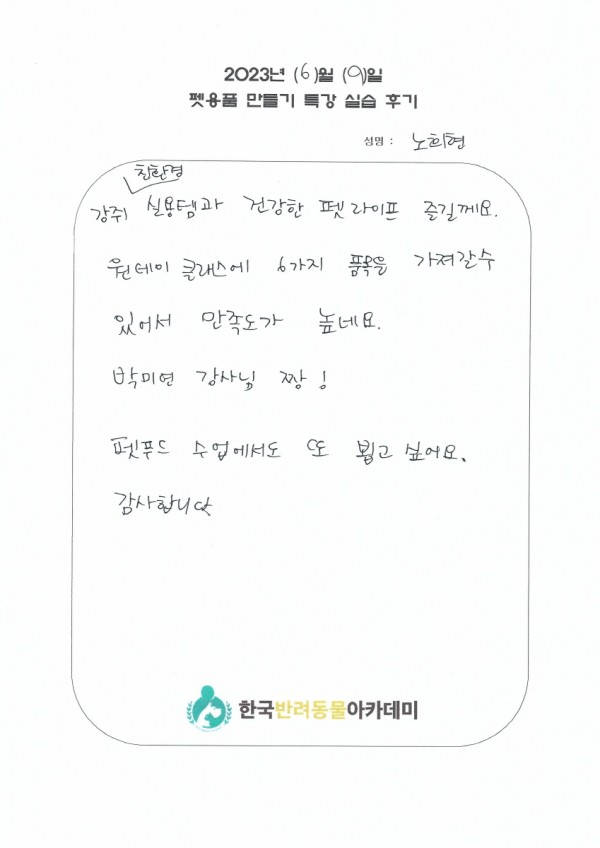 2023년 (6)월 (9)일
펫용품 만들기 특강 실습 후기
성명 : 노희현
친환경
강쥐 실용템과 건강한 펫라이프 즐길께요.
원데이 클래스에 6가지 품목을 가져갈수
있어서 만족도가 높네요.
박미연 강사님 짱!
펫푸드 수업에서도 또 뵙고 싶어요.
감사합니다
한국반려동물아카데미